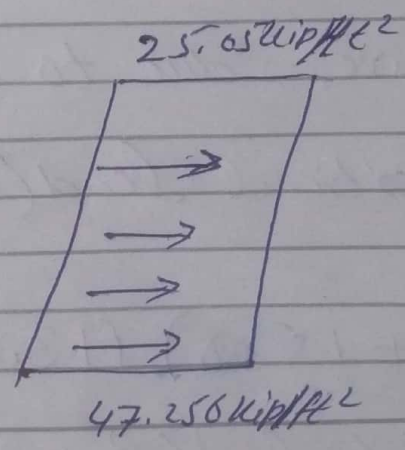 25.05Kip/ft²
47.256Kip/ft²